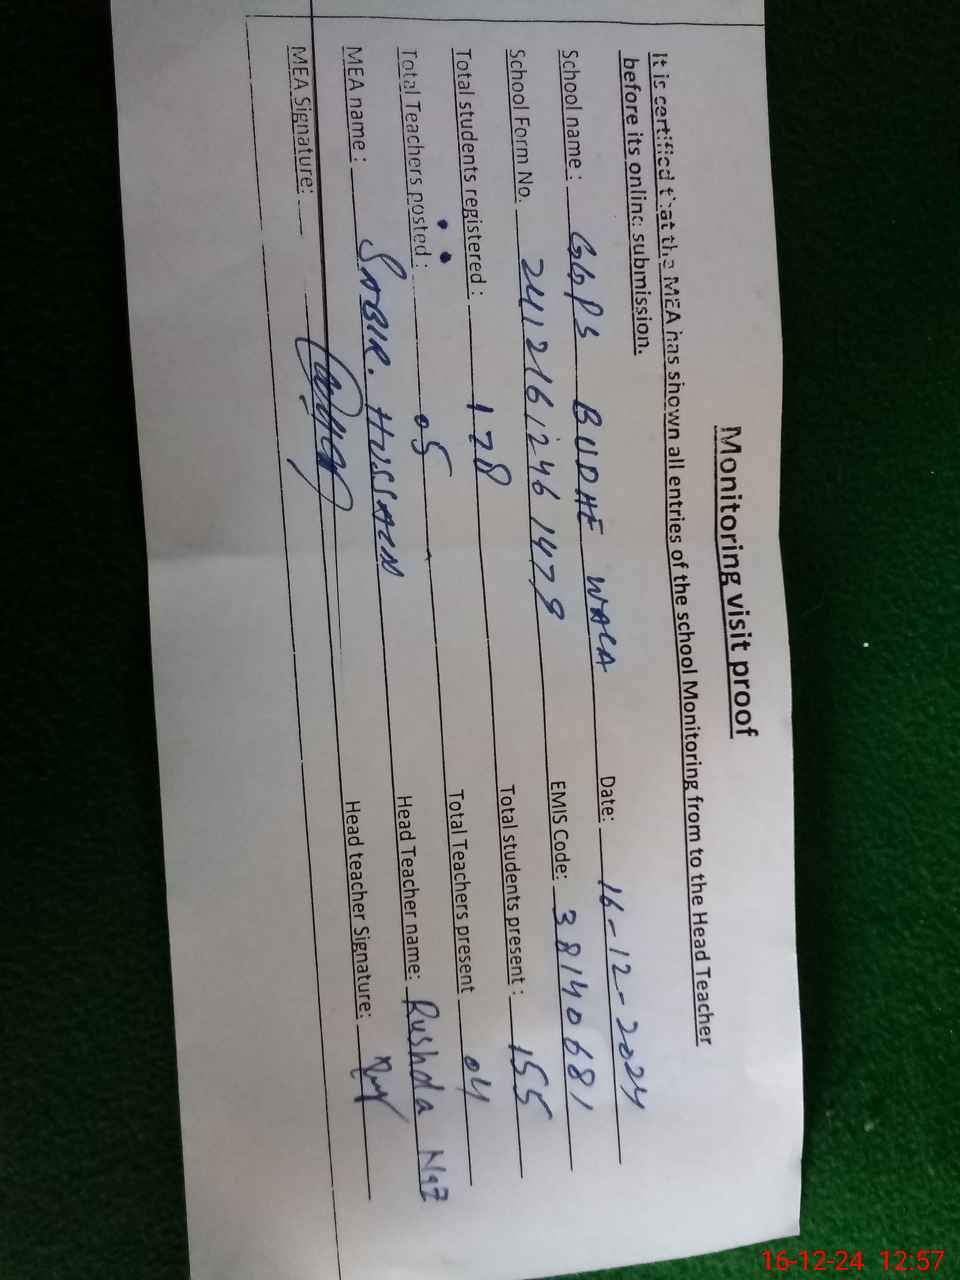 Monitoring visit proof
It is certified that the MEA has shown all entries of the school Monitoring from to the Head Teacher
before its online submission.
School name : GGPS BUDHE WALA Date: 16-12-2024
School Form No. 24121612461479 EMIS Code: 38140681
Total students registered : 178 Total students present : 155
Total Teachers posted : 05 Total Teachers present 04
MEA name : SABIR. HUSSAIN Head Teacher name: Rushda Naz
MEA Signature: Head teacher Signature:
16-12-24 12:57